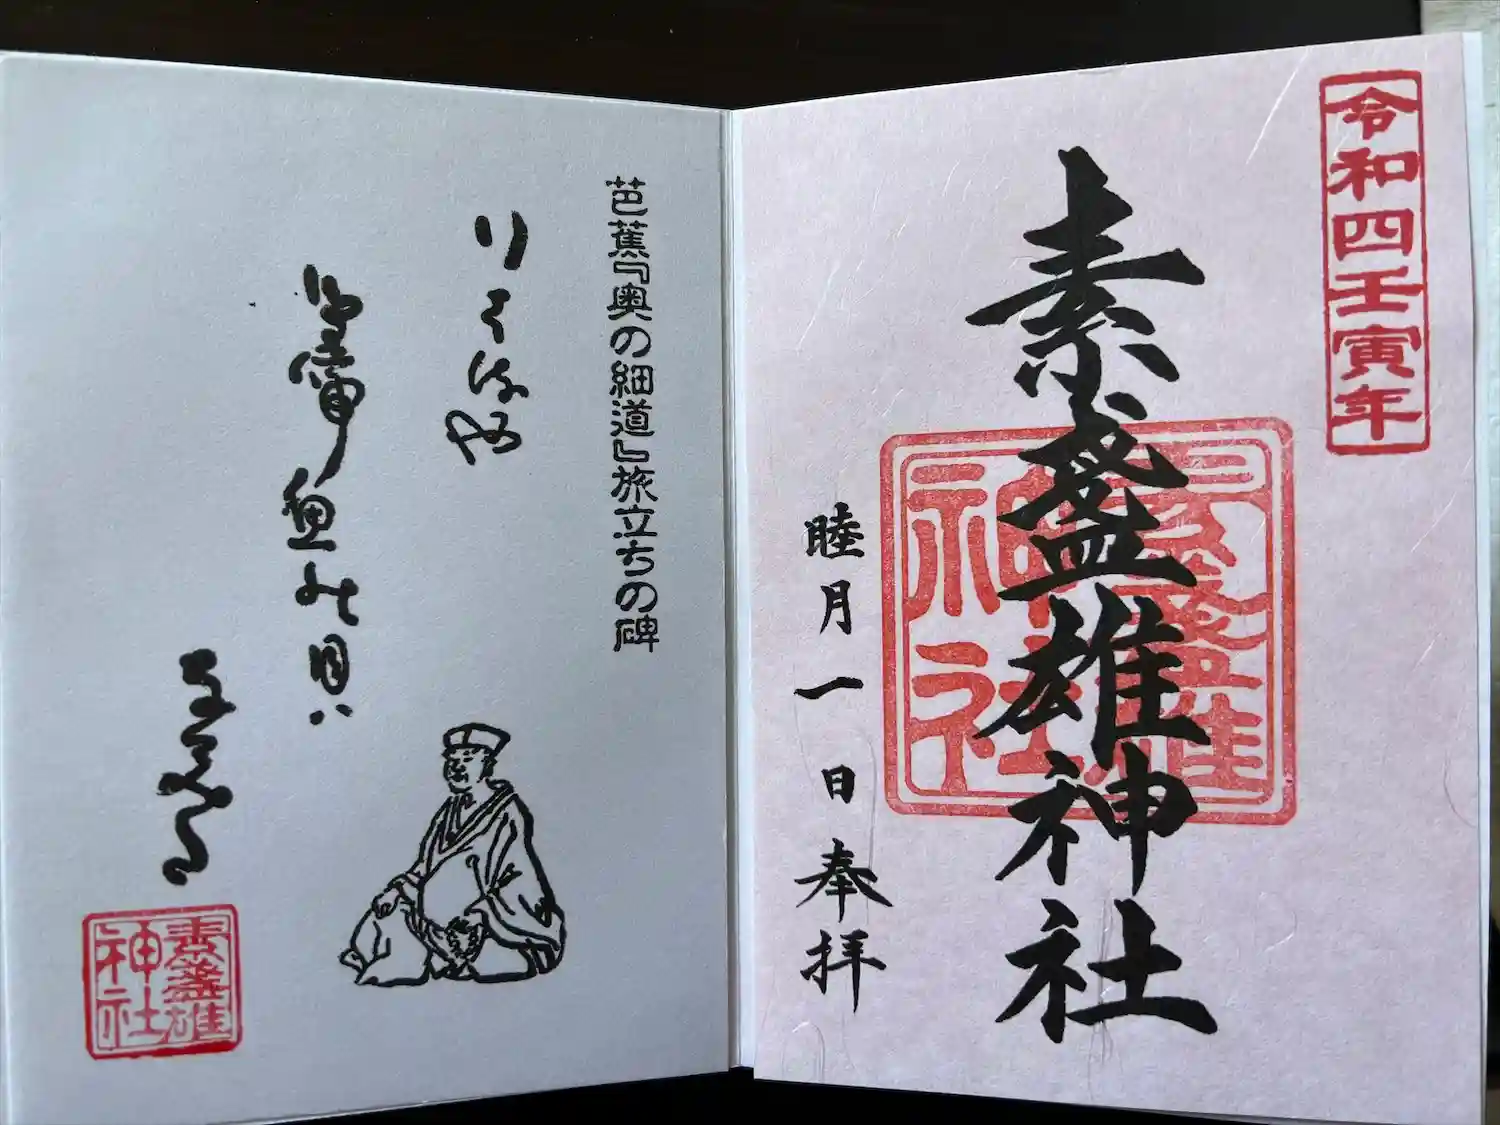 令和四壬寅年
素盞雄神社
素盞雄
神社
睦月一日奉拝
芭蕉『奥の細道』旅立ちの碑
行はるや
鳥啼魚の目ハ
素盞雄
神社